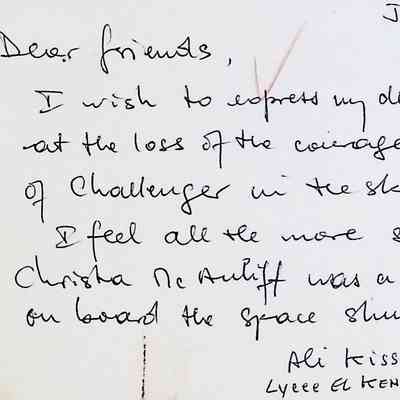 J
Dear friends,
I wish to express my d
at the loss of the courage
of Challenger in the sk
I feel all the more s
Christa Mc Auliff was a
on board the space shu
Ali Kiss
Lycee El Ken